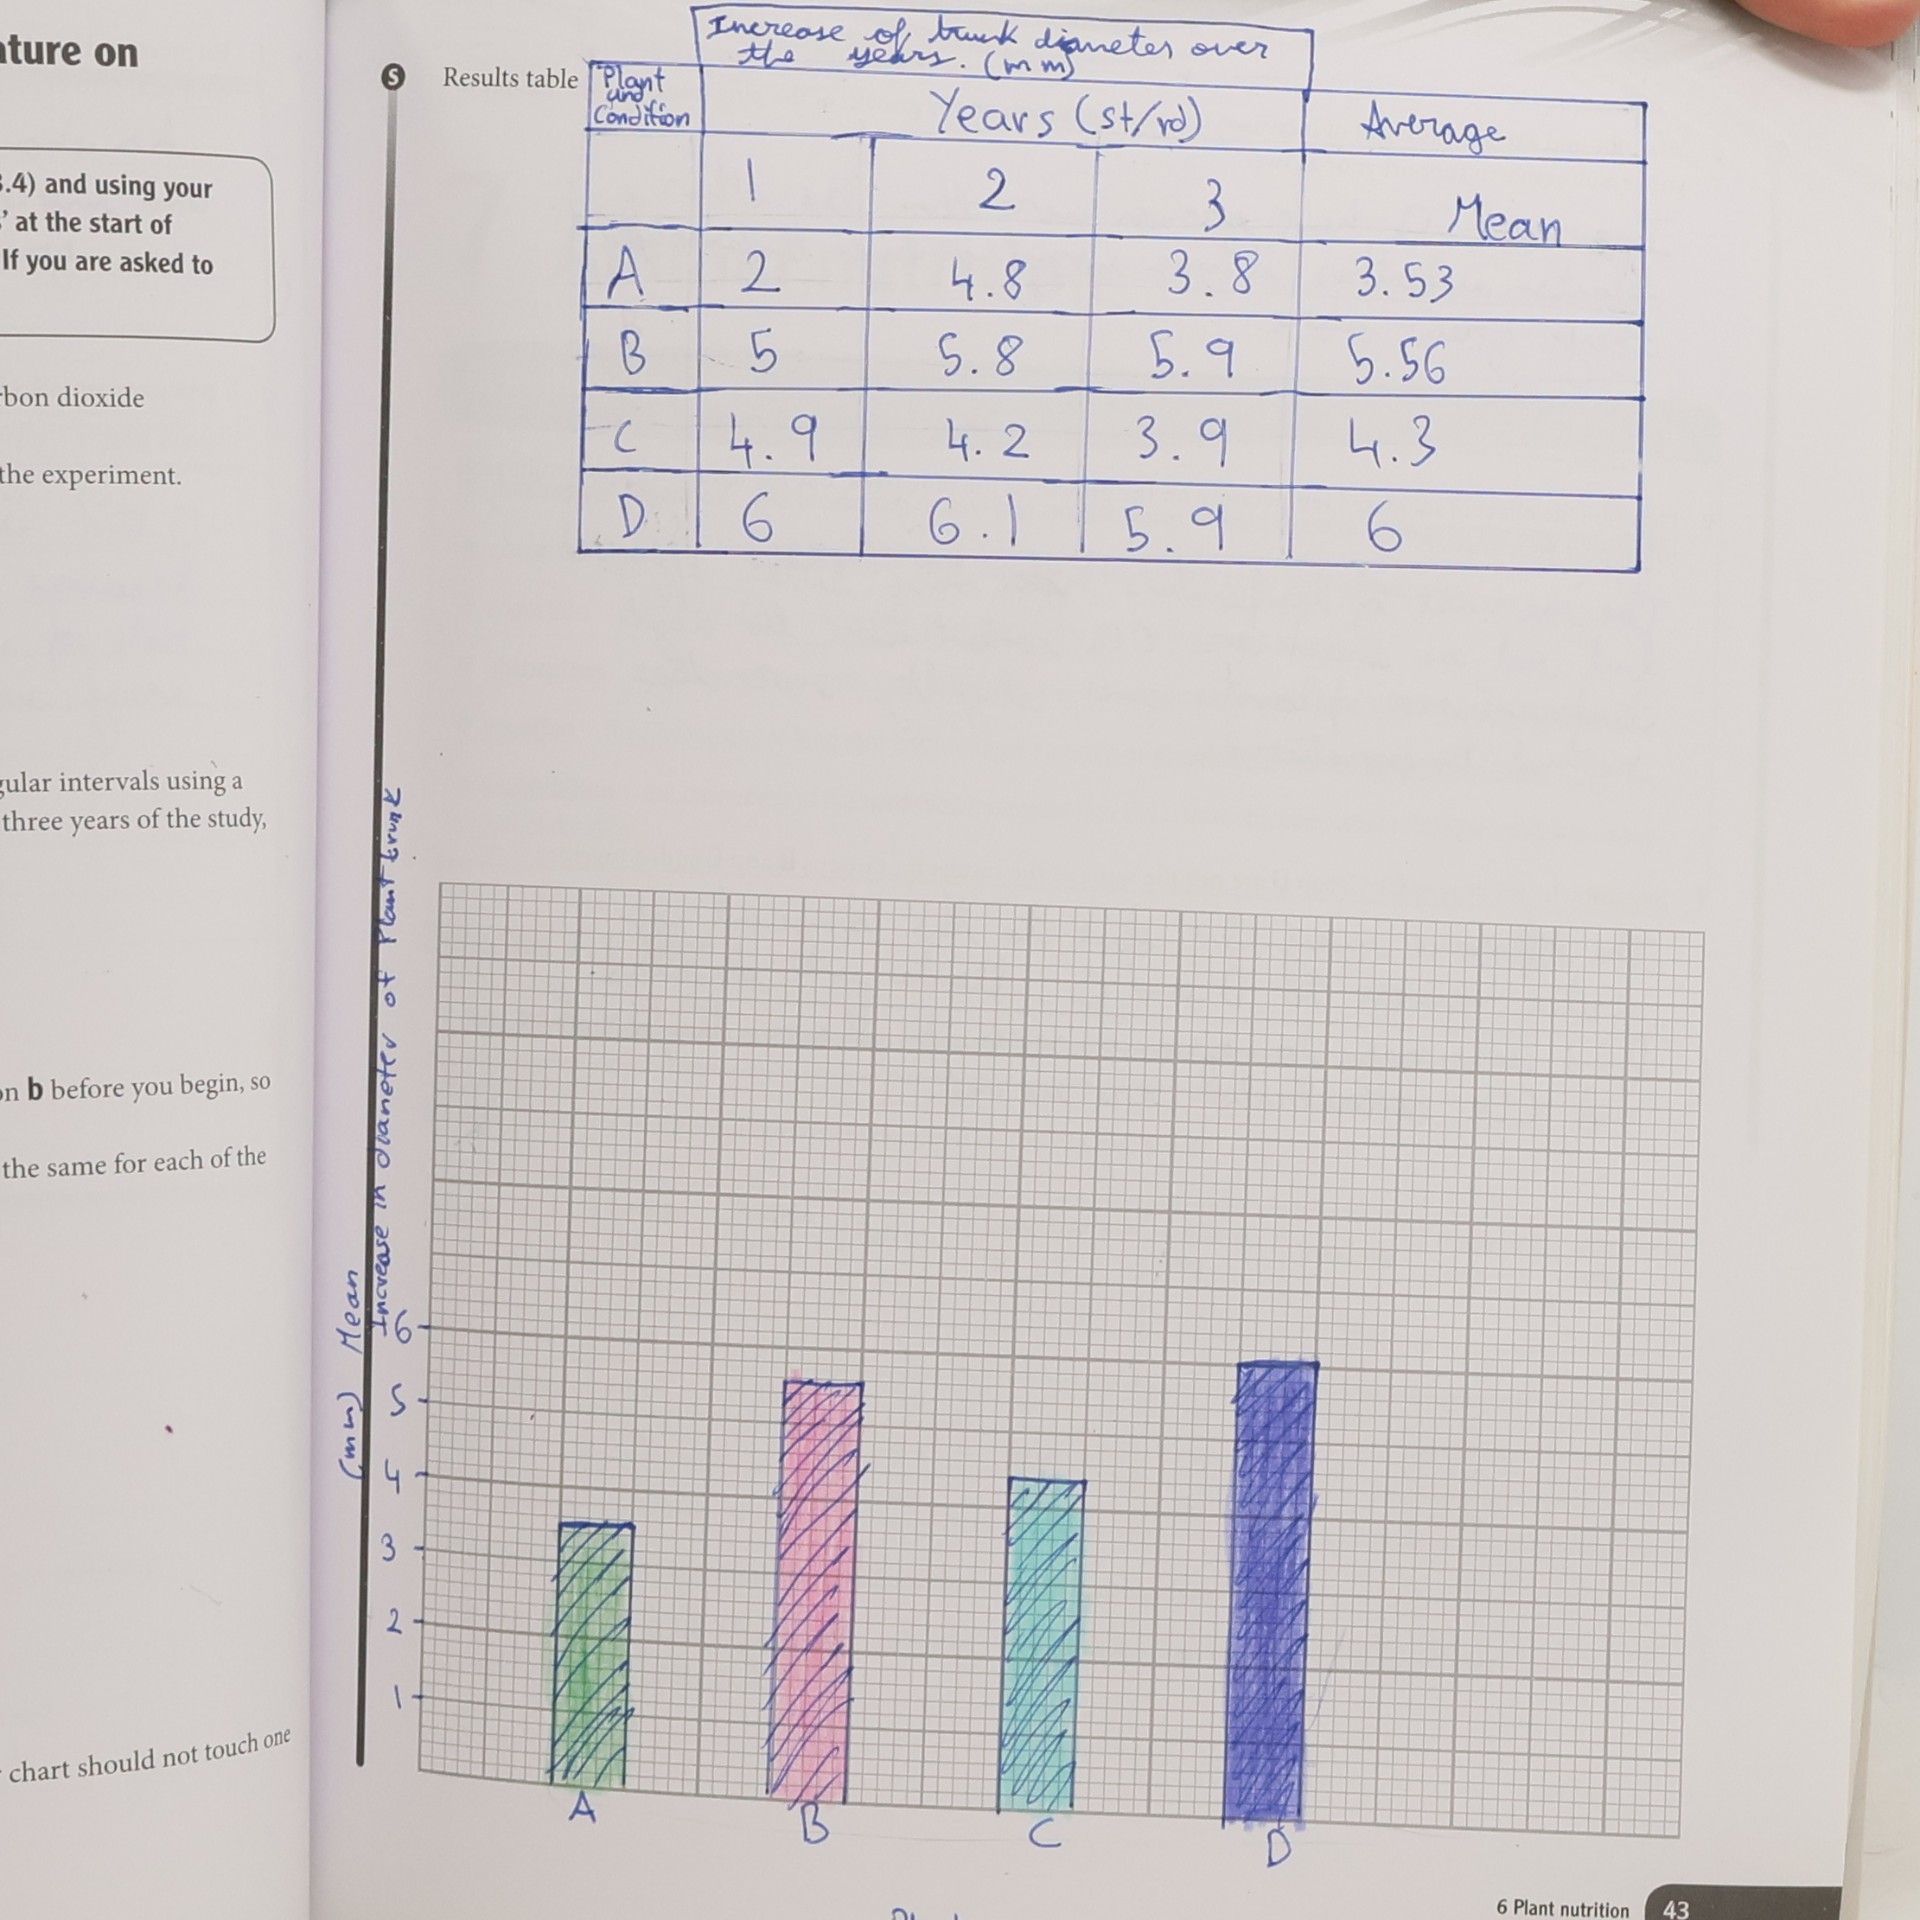 ature on
.4) and using your
' at the start of
If you are asked to
rbon dioxide
the experiment.
gular intervals using a
three years of the study,
on b before you begin, so
the same for each of the
chart should not touch one
S
Results table
Increase of trunk diameter over
the years. (mm)
Plant and Condition
Years (st/rd)
Average
1 2 3 Mean
A 2 4.8 3.8 3.53
B 5 5.8 5.9 5.56
C 4.9 4.2 3.9 4.3
D 6 6.1 5.9 6
(mm) Mean
Increase in diameter of Plant trunk
6
5
4
3
2
1
A B C D
6 Plant nutrition 43